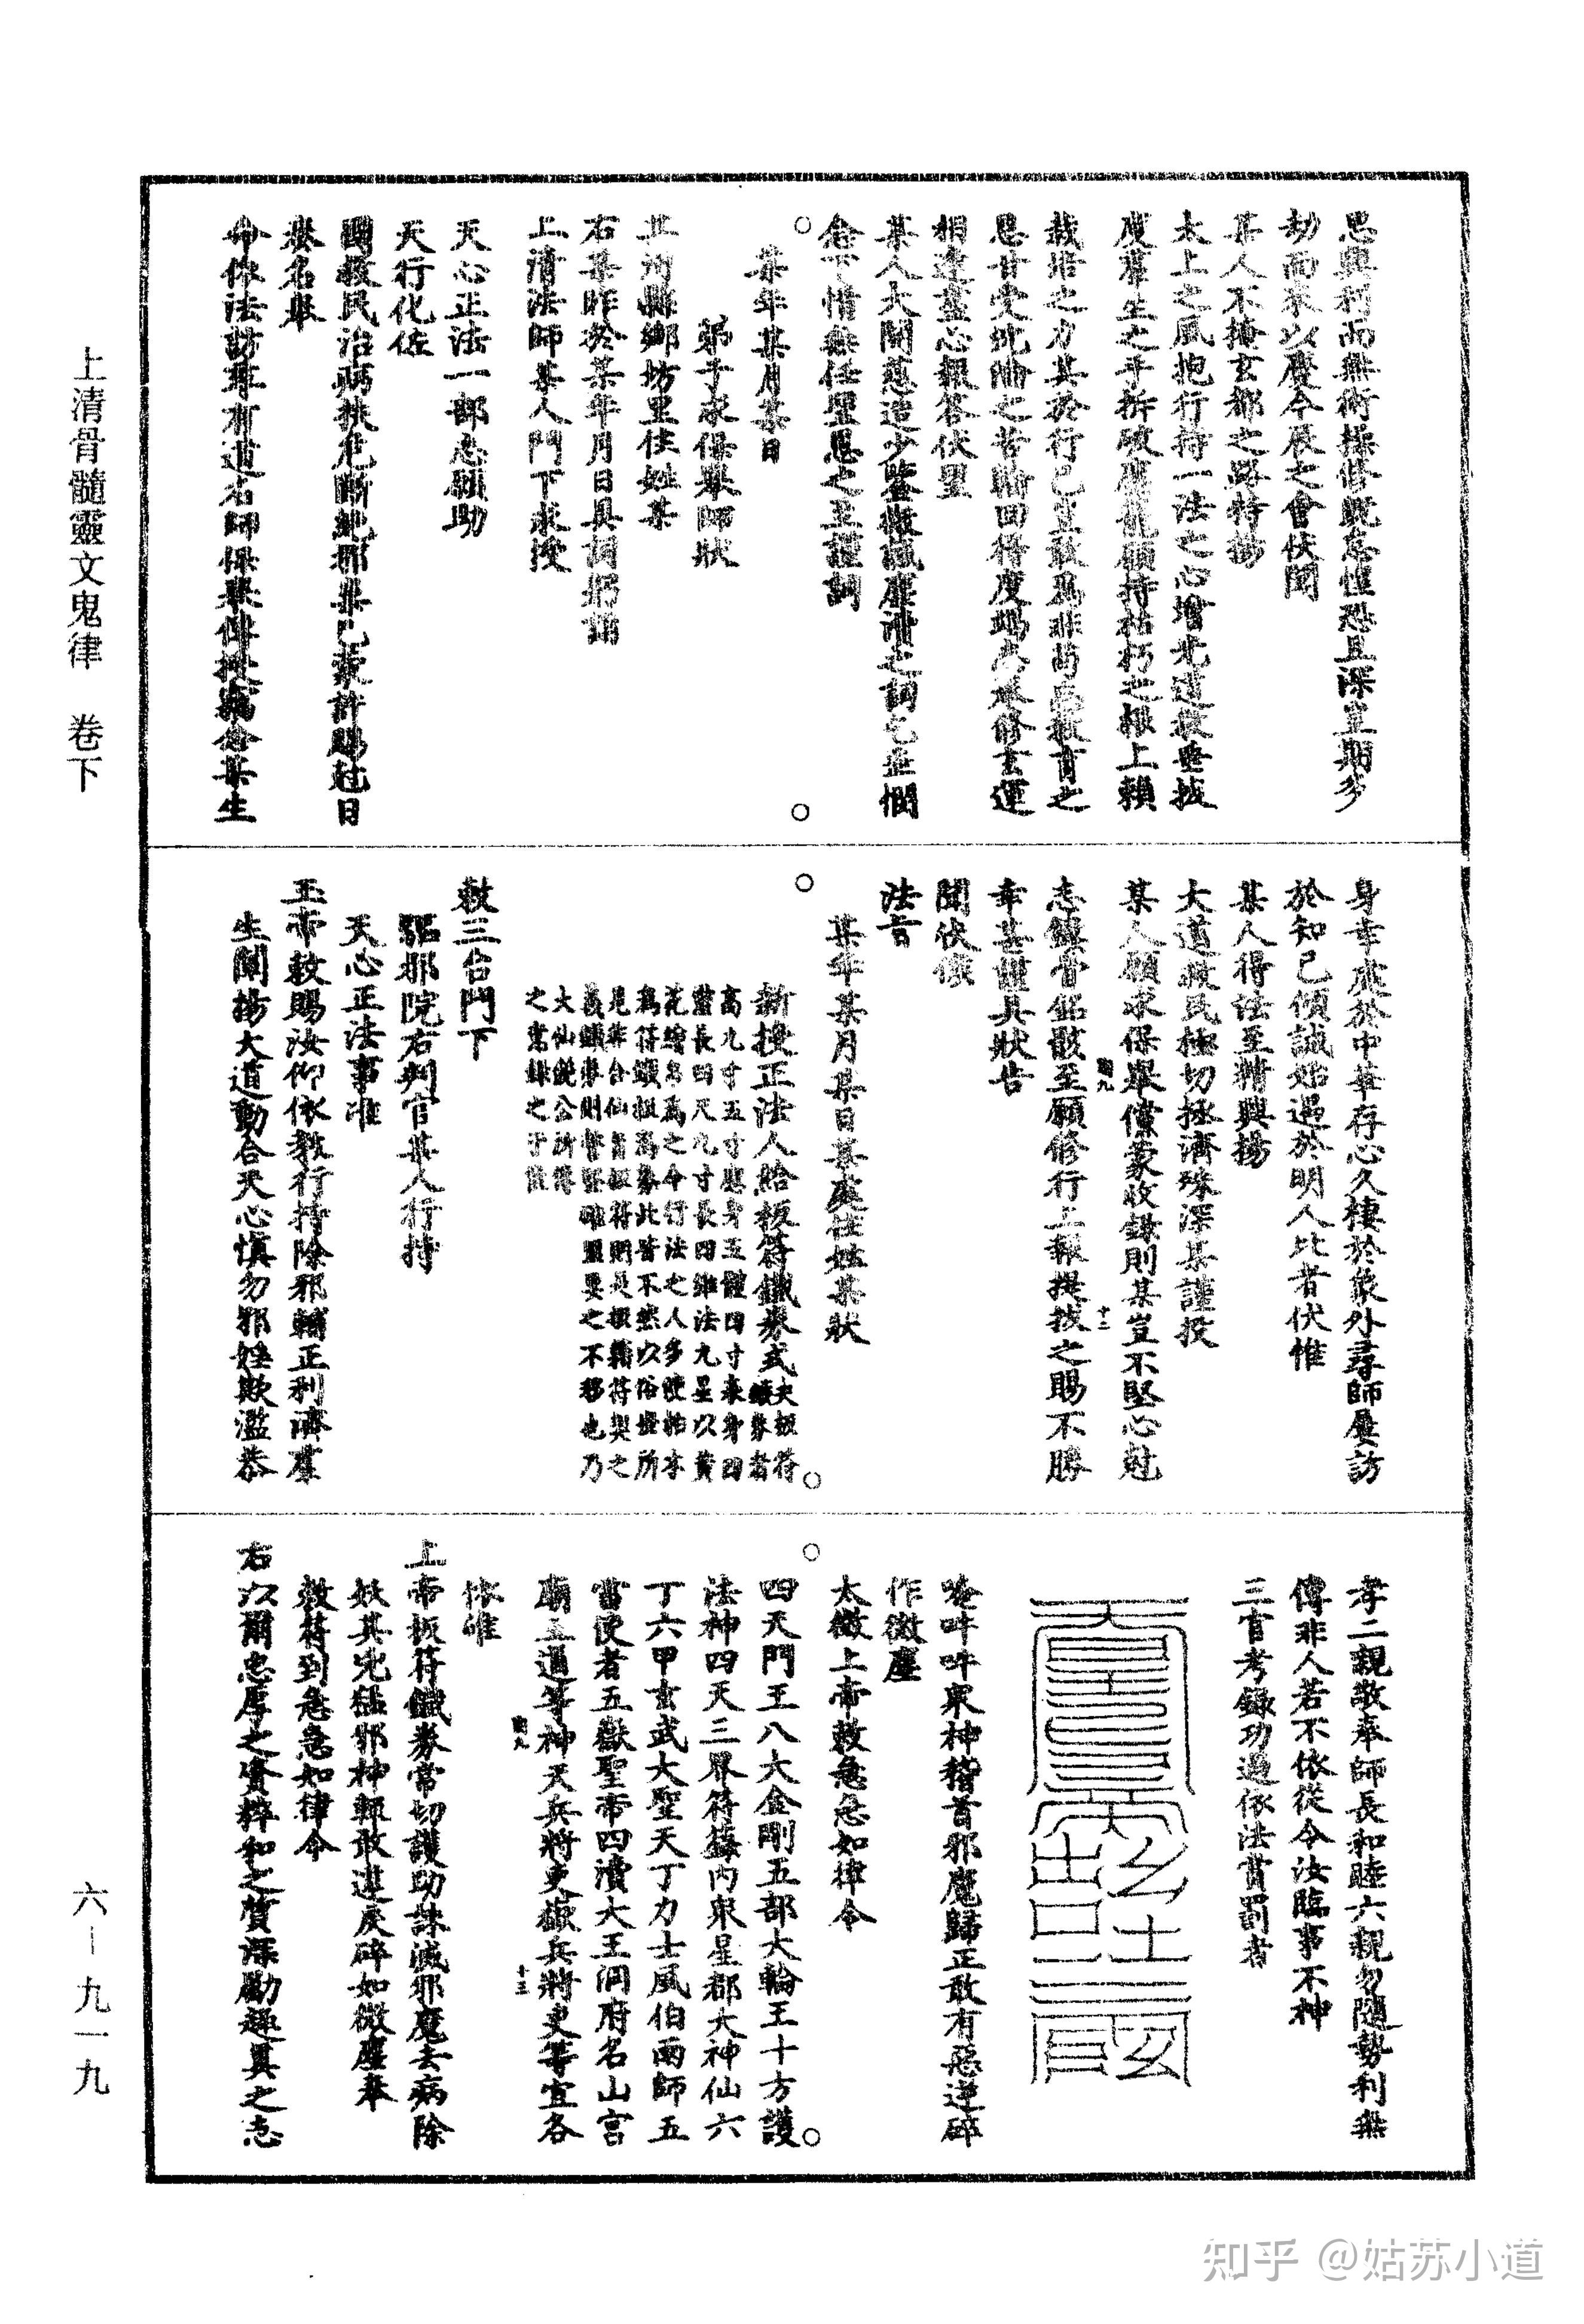 思與利而無術操修既怠惶恐且深豈期多
劫而來以慶今辰之會伏聞
某人不掩玄都之路特揚
太上之風抱行持一法之心增先道教垂拔
度羣生之手折破魔龍願持枯朽之根上賴
栽培之力其於行己豈敢爲非苟虧教育之
恩甘受沈淪之苦輪回得度竭力承修玄運
相逢盡心報答伏望
某人大開慈造少鑒微誠塵瀆之詞乞垂憫
念下情無任望恩之至謹詞
某年某月某日
弟子求保舉師狀
某州縣鄉坊里住姓某
右某昨於某年月日具詞投詣
上清法師某人門下求授
天心正法一部志願助
天行化佐
國救民治病扶危斷絶邪祟已蒙許賜尅日
奏名舉
令依法訪尋有道名師保舉傳授竊念某生
身幸處於中華存心久棲於象外尋師屢訪
於知己傾誠始遇於明人比者伏惟
某人得法至精興揚
大道救民極切拯濟殊深某謹投
某人願求保舉儻蒙收錄則某豈不堅心尅
志鏤骨銘骸至願修行上報提拔之賜不勝
幸甚謹具狀告
聞伏候
法旨
某年某月某日某處住姓某狀
新授正法人給板符鐵券式夫板符鐵券者
高九寸五寸應身五體四寸表身四
當長四尺九寸長四維法九星以黃
花繪帛爲之今行法之人多使柏木
爲符鐵板爲券此皆不然以俗檀所
見葉合仙旨板符則是板籍符契之
義鐵券則誓堅確盟要之不移也乃
大仙饒公所得
之寓錄之于後
敕三台門下
驅邪院右判官某人行持
天心正法事准
玉帝敕賜汝仰依教行持除邪輔正利濟羣
生闡揚大道動合天心愼勿邪婬欺濫恭
孝二親敬奉師長和睦六親勿隨勢利無
傳非人若不依從令汝臨事不神
三官考錄功過依法賞罰者
唵吽吽衆神稽首邪魔歸正敢有惡逆碎
作微塵
太微上帝敕急急如律令
四天門王八大金剛五部大輪王十方護
法神四天三界符籙內衆星郡大神仙六
丁六甲玄武大聖天丁力士風伯雨師五
當使者五嶽聖帝四瀆大王洞府名山宮
廟五通等神天兵將吏嶽兵將吏等宜各
依准
上帝板符鐵券當切護助誅滅邪魔去病除
妖其兇猛邪神輒敢違戾碎如微塵奉
敕符到急急如律令
右以爾忠厚之資粹和之質深勵趨異之志
上清骨髓靈文鬼律 卷下
六－九一九
知乎 @姑苏小道